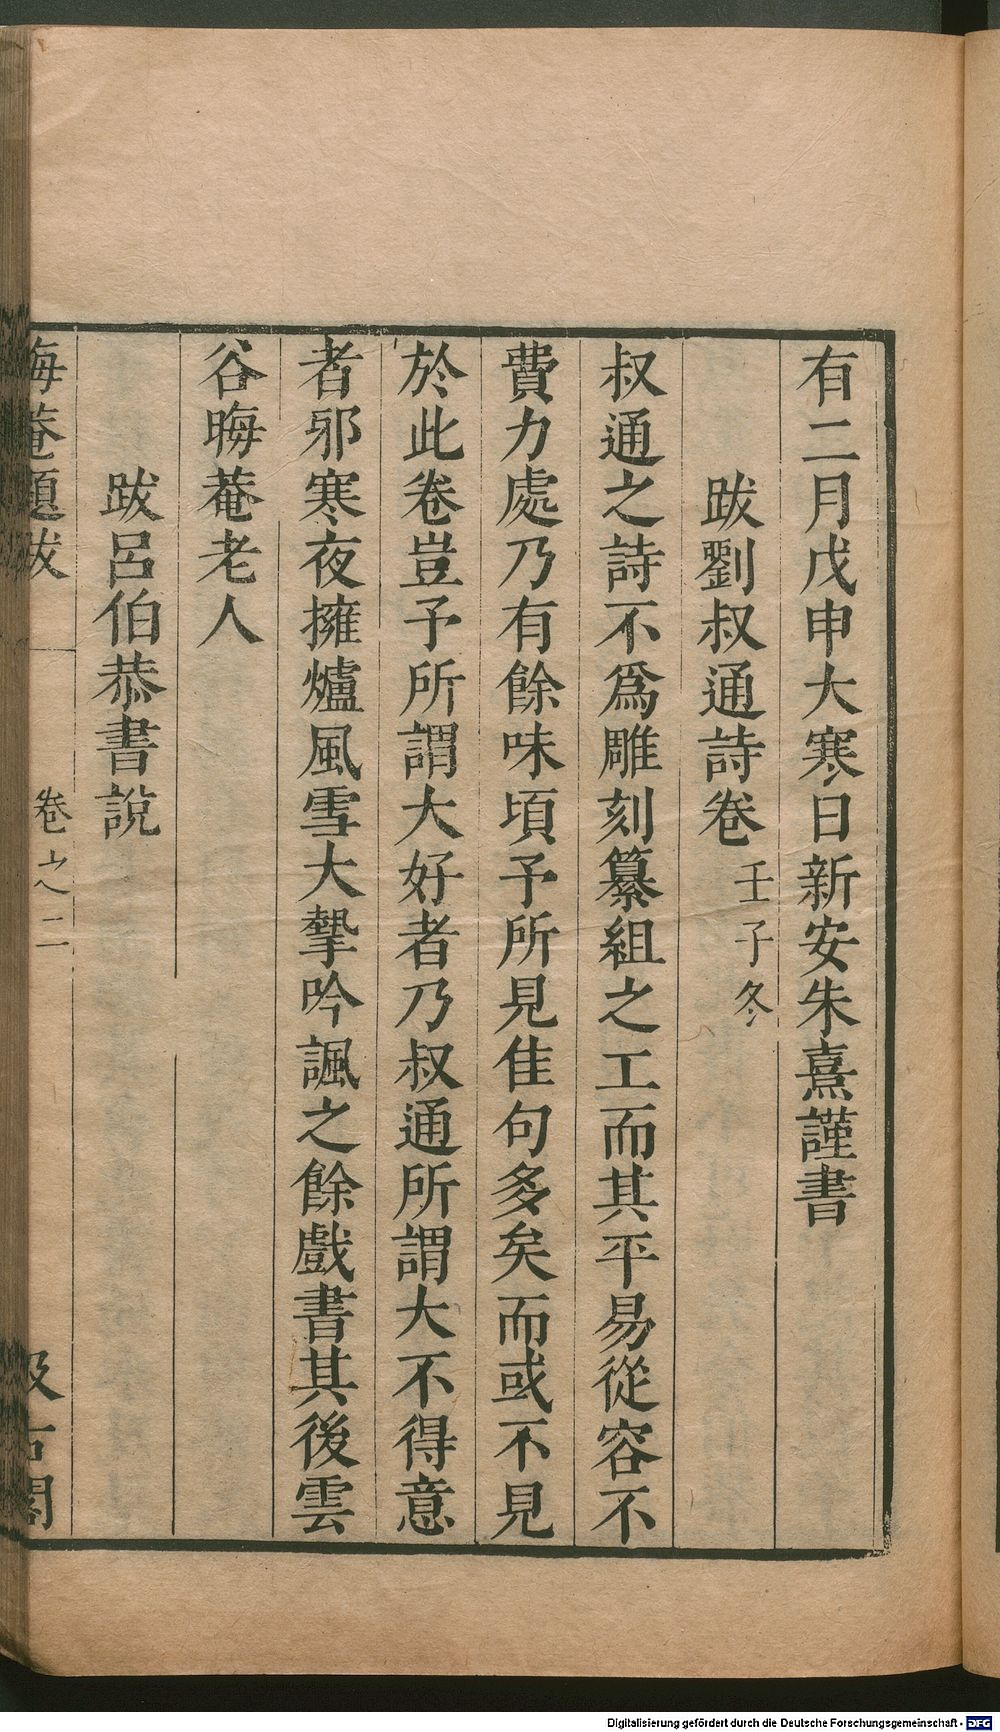 有二月戊申大寒日新安朱熹謹書
跋劉叔通詩卷 壬子冬
叔通之詩不爲雕刻纂組之工而其平易從容不
費力處乃有餘味頃予所見佳句多矣而或不見
於此卷豈予所謂大好者乃叔通所謂大不得意
者邪寒夜擁爐風雪大摯吟諷之餘戲書其後雲
谷晦菴老人
跋呂伯恭書說
晦菴題跋 卷之二 汲古閣
Digitalisierung gefördert durch die Deutsche Forschungsgemeinschaft - DFG